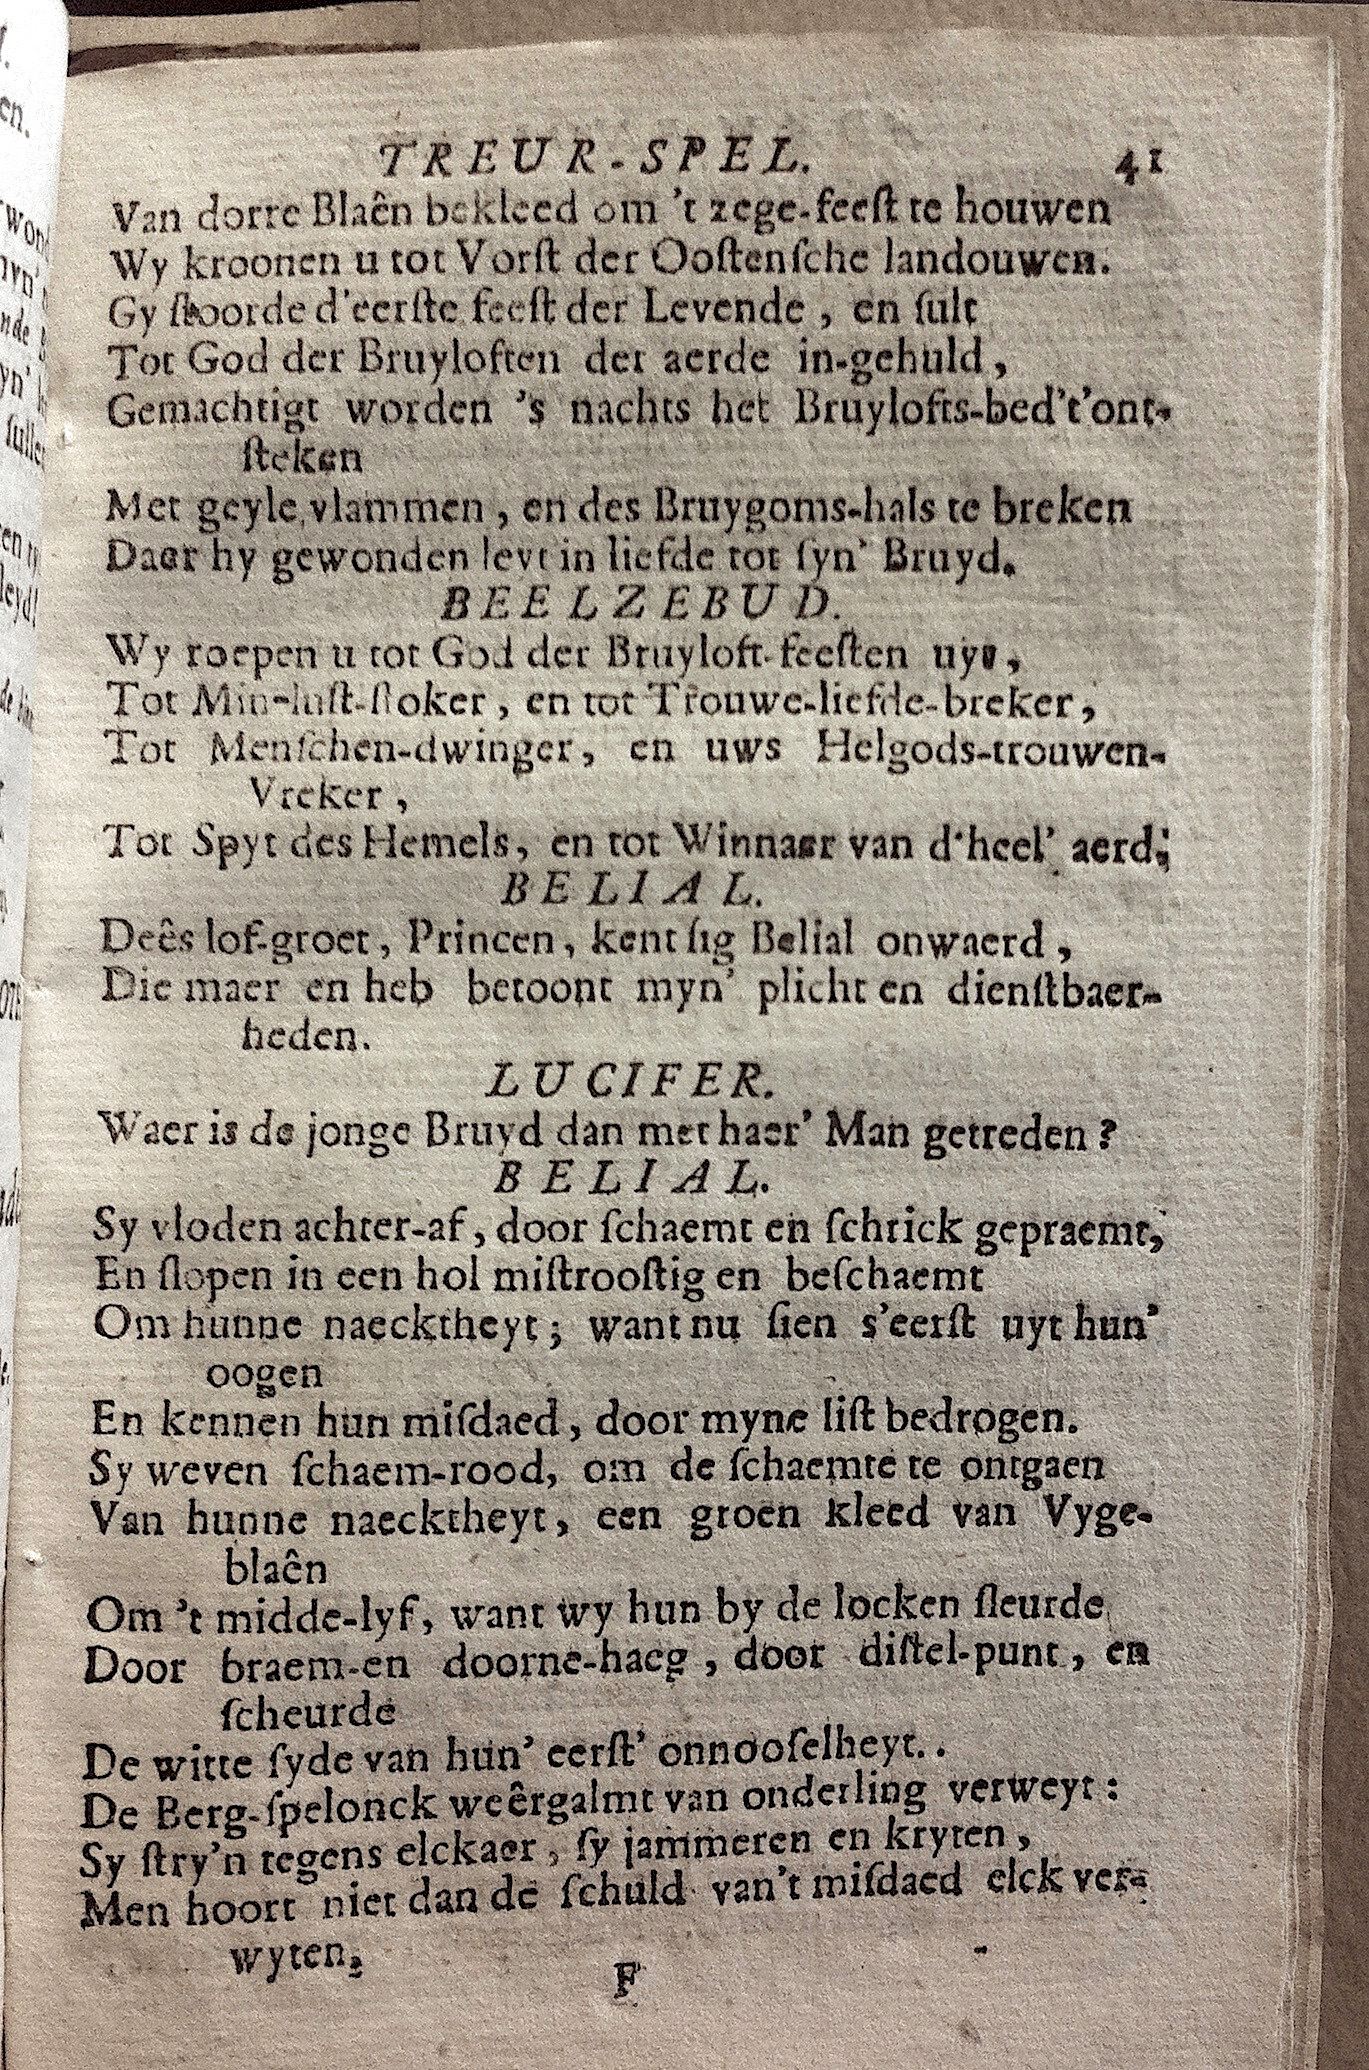 TREUR-SPEL. 41
Van dorre Blaên bekleed om 't zege-feeſt te houwen
Wy kroonen u tot Vorſt der Ooſtenſche landouwen.
Gy ſtoorde d'eerſte feeſt der Levende, en ſult
Tot God der Bruyloften der aerde in-gehuld,
Gemachtigt worden 's nachts het Bruylofts-bed't'ont-
ſteken
Met geyle vlammen, en des Bruygoms-hals te breken
Daer hy gewonden leyt in liefde tot ſyn' Bruyd.
BEELZEBUD.
Wy roepen u tot God der Bruyloft-feeſten uyt,
Tot Min-luſt-ſtoker, en tot Trouwe-liefde-breker,
Tot Menſchen-dwinger, en uws Helgods-trouwen-
Vreker,
Tot Spyt des Hemels, en tot Winnaer van d'heel' aerd;
BELIAL.
Deês lof-groet, Princen, kent ſig Belial onwaerd,
Die maer en heb betoont myn' plicht en dienſtbaer-
heden.
LUCIFER.
Waer is de jonge Bruyd dan met haer' Man getreden?
BELIAL.
Sy vloden achter-af, door ſchaemt en ſchrick gepraemt,
En ſlopen in een hol miſtrooſtig en beſchaemt
Om hunne naecktheyt; want nu ſien s'eerſt uyt hun'
oogen
En kennen hun miſdaed, door myne liſt bedrogen.
Sy weven ſchaem-rood, om de ſchaemte te ontgaen
Van hunne naecktheyt, een groen kleed van Vyge-
blaên
Om 't midde-lyf, want wy hun by de locken ſleurde
Door braem-en doorne-haeg, door diſtel-punt, en
ſcheurde
De witte ſyde van hun' eerſt' onnooſelheyt..
De Berg-ſpelonck weêrgalmt van onderling verweyt:
Sy ſtry'n tegens elckaer, ſy jammeren en kryten,
Men hoort niet dan de ſchuld van't miſdaed elck ver-
wyten.
F